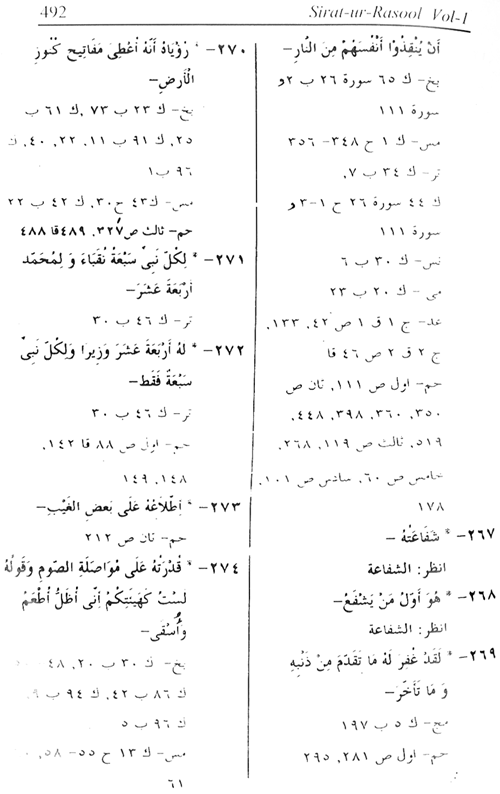 492
Sirat-ur-Rasool Vol-1
أَنْ يُنْقِذُوْا أَنْفُسَهُمْ مِنَ النَّارِ-
بخ- ك ٦٥ سورة ٢٦ ب ٢ و
سورة ١١١
مس- ك ١ ح ٣٤٨- ٣٥٦
تر- ك ٣٤ ب ٧,
ك ٤٤ سورة ٢٦ ح ١-٣ و
سورة ١١١
نس- ك ٣٠ ب ٦
مى- ك ٢٠ ب ٢٣
عد- ج ١ ق ١ ص ٤٢, ١٣٣,
ج ٢ ق ٢ ص ٤٦ قا
حم- اول ص ١١١, ثان ص
٣٥٠, ٣٦٠, ٣٩٨, ٤٤٨,
٥١٩, ثالث ص ١١٩, ٢٦٨,
خامس ص ٦٠, سادس ص ١٠١,
١٧٨
٢٦٧- * شَفَاعَتُهُ -
انظر: الشفاعة
٢٦٨- * هُوَ أَوّلُ مَنْ يَشْفَعُ-
انظر: الشفاعة
٢٦٩- * لَقَدْ غُفِرَ لَهُ مَا تَقَدّمَ مِنْ ذَنْبِهِ
وَ مَا تَأَخّرَ-
مج- ك ٥ ب ١٩٧
حم- اول ص ٢٨١, ٢٩٥
٢٧٠- * رُؤْيَاهُ أَنّهُ أُعْطِىَ مَفَاتِيح كُنُوزِ
الْأَرضِ-
بخ- ك ٢٣ ب ٧٣, ك ٦١ ب
٢٥, ك ٩١ ب ١١, ٢٢, ٤٠, ك
٩٦ ب ١
مس- ك ٤٣ ح ٣٠, ك ٤٢ ب ٢٢
حم- ثالث ص ٣٢٧, ٤٨٩ قا ٤٨٨
٢٧١- * لِكُلّ نَبِىّ سَبْعَةُ نُقَبَاءَ وَ لِمُحَمّد
أَرْبَعَةَ عَشَرَ-
تر- ك ٤٦ ب ٣٠
٢٧٢- * لَهُ أَرْبَعَةَ عَشَرَ وَزِيرا وَلِكُلّ نَبِىّ
سَبْعَةُ فَقَط-
تر- ك ٤٦ ب ٣٠
حم- اول ص ٨٨ قا ١٤٢,
١٤٨, ١٤٩
٢٧٣- * اِطّلَاعُهُ عَلَى بَعضِ الغَيْبِ-
حم- ثان ص ٢١٢
٢٧٤- * قُدْرَتُهُ عَلَى مُوَاصَلَةِ الصّومِ وَقَولُهُ
لَسْتُ كَهَيئَتِكُمْ اِنّى أُظَلّ أُطْعَمُ
وَأُسْقَى-
بخ- ك ٣٠ ب ٢٠, ٤٨
ك ٨٦ ب ٤٢, ك ٩٤ ب ٩,
ك ٩٦ ب ٥
مس- ك ١٣ ح ٥٥- ٥٨,
٦١